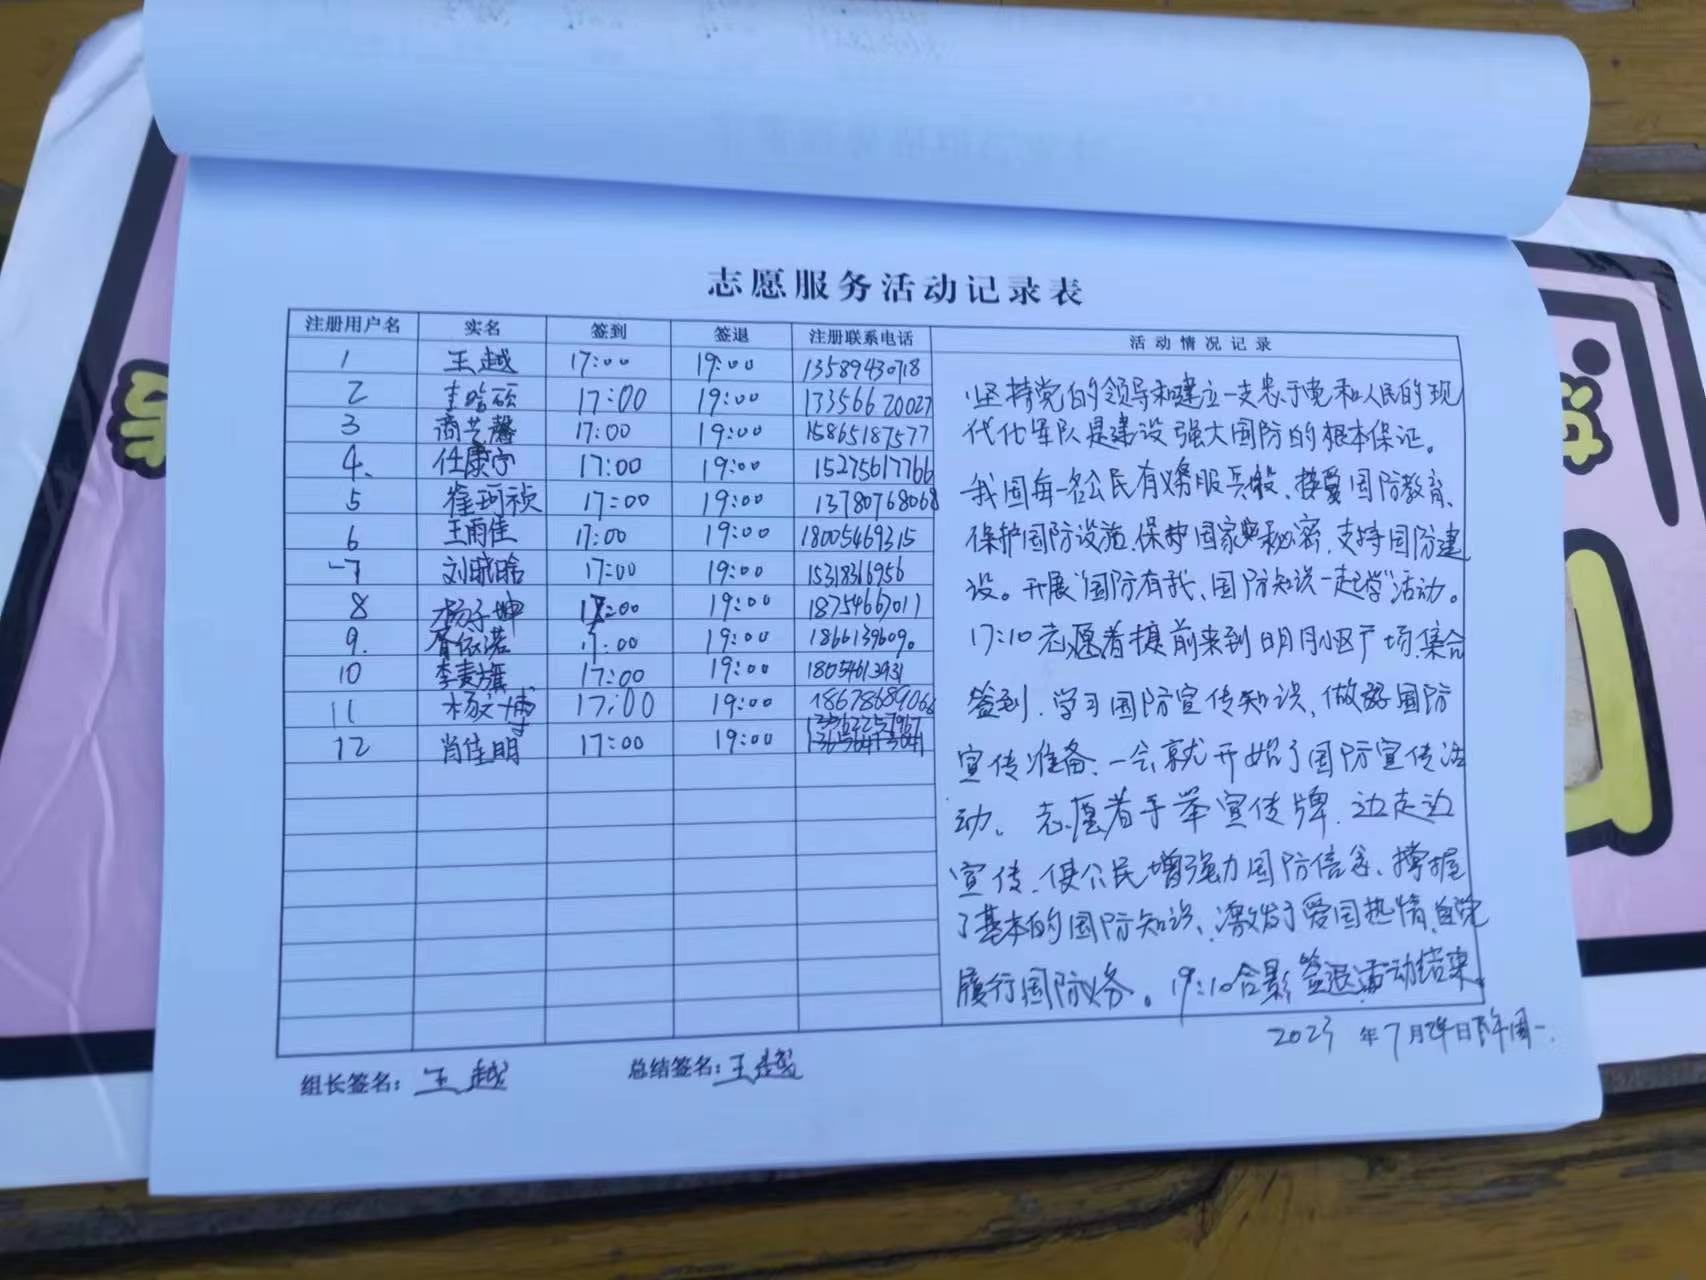 志愿服务活动记录表
注册用户名 实名 签到 签退 注册联系电话 活动情况记录
1 王越 17:00 19:00 13589430718
2 17:00 19:00 13356620027
3 商艺馨 17:00 19:00 15865187577
4、 任康宁 17:00 19:00 15275617766
5 崔珂祯 17:00 19:00 13780768068
6 王雨佳 17:00 19:00 18005469315
7 刘晓晗 17:00 19:00 15318316956
8 杨子坤 17:00 19:00 18754667011
9. 胥依诺 17:00 19:00
10 李麦旗 17:00 19:00
11 杨文博 17:00 19:00
12 肖佳明 17:00 19:00
坚持党的领导和建立一支忠于党和人民的现
代化军队是建设强大国防的根本保证。
我国每一名公民有义务服兵役、接受国防教育、
保护国防设施、保护国家秘密、支持国防建
设。开展“国防有我、国防知识一起学”活动。
17:10志愿者提前来到明月小区广场集合
签到、学习国防宣传知识，做好国防
宣传准备、一会就开始了国防宣传活
动。志愿者手举宣传牌、边走边
宣传、使公民增强力国防信念、撑握
了基本的国防知识、激发了爱国热情、自觉
履行国防义务。19:10合影签退活动结束
2023年7月24日下午周一.
组长签名：王越 总结签名：王越